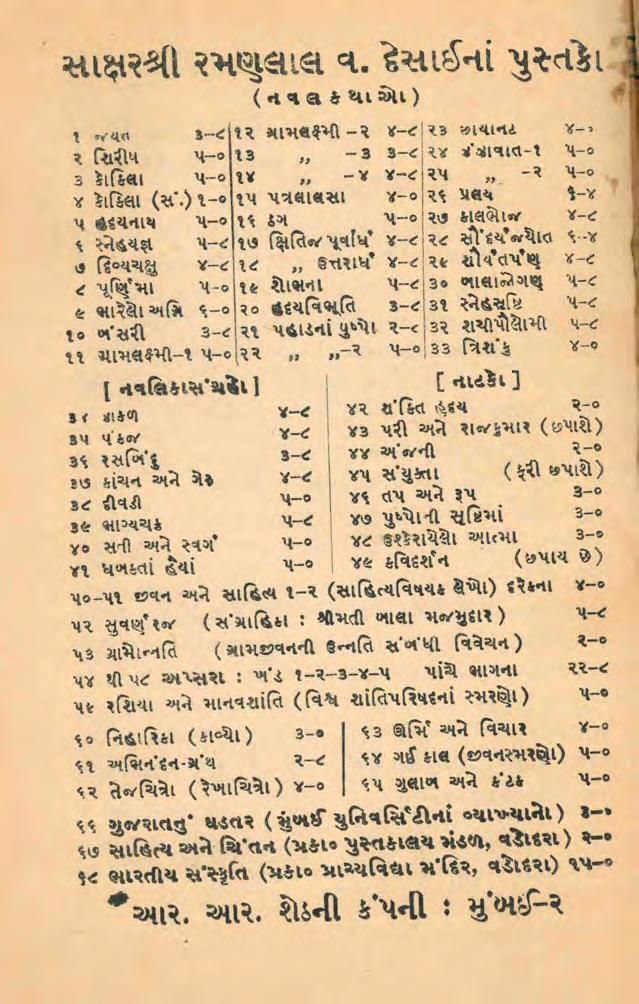 સાક્ષરશ્રી રમણલાલ વ. દેસાઈનાં પુસ્તકો
(નવલકથાઓ)
૧ જયંત ૩-૮
૨ શિરીષ ૫-૦
૩ કોકિલા ૫-૦
૪ કોકિલા (સં.) ૧-૦
૫ હૃદયનાથ ૫-૦
૬ સ્નેહયજ્ઞ ૫-૮
૭ દિવ્યચક્ષુ ૪-૮
૮ પૂર્ણિમા ૫-૦
૯ ભારેલો અગ્નિ ૬-૦
૧૦ બંસરી ૩-૮
૧૧ ગ્રામલક્ષ્મી-૧ ૫-૦
૧૨ ગ્રામલક્ષ્મી-૨ ૪-૮
૧૩ ,, -૩ ૩-૮
૧૪ ,, -૪ ૪-૮
૧૫ પત્રલાલસા ૪-૦
૧૬ ઠગ ૫-૦
૧૭ ક્ષિતિજ પૂર્વાર્ધ ૪-૮
૧૮ ,, ઉત્તરાર્ધ ૪-૮
૧૯ શોભના ૫-૮
૨૦ હૃદયવિભૂતિ ૩-૮
૨૧ પહાડનાં પુષ્પો ૨-૮
૨૨ ,, ,,-૨ ૫-૦
૨૩ છાયાનટ ૪-૦
૨૪ ઝંઝાવાત-૧ ૫-૦
૨૫ ,, -૨ ૫-૦
૨૬ પ્રલય ૬-૪
૨૭ કાલભોજ ૪-૮
૨૮ સૌંદર્યજ્યોત ૬-૪
૨૯ શૌર્યતર્પણ ૪-૮
૩૦ બાલાજોગણ ૫-૮
૩૧ સ્નેહસૃષ્ટિ ૫-૮
૩૨ શચીપૌલોમી ૫-૮
૩૩ ત્રિશંકુ ૪-૦
[નવલિકાસંગ્રહો]
૩૪ ઝાકળ ૪-૮
૩૫ પંકજ ૪-૮
૩૬ રસબિંદુ ૩-૮
૩૭ કાંચન અને ગેરુ ૪-૮
૩૮ દીવડી ૫-૦
૩૯ ભાગ્યચક્ર ૫-૮
૪૦ સતી અને સ્વર્ગ ૫-૦
૪૧ ધબકતાં હૈયાં ૫-૦
[નાટકો]
૪૨ શંકિત હૃદય ૨-૦
૪૩ પરી અને રાજકુમાર (છપાશે)
૪૪ અંજની ૨-૦
૪૫ સંયુક્તા (ફરી છપાશે)
૪૬ તપ અને રૂપ ૩-૦
૪૭ પુષ્પોની સૃષ્ટિમાં ૩-૦
૪૮ ઉશ્કેરાયેલો આત્મા ૩-૦
૪૯ કવિદર્શન (છપાય છે)
૫૦-૫૧ જીવન અને સાહિત્ય ૧-૨ (સાહિત્યવિષયક લેખો) દરેકના ૪-૦
૫૨ સુવર્ણરજ (સંગ્રાહિકા : શ્રીમતી બાલા મજમુદાર) ૫-૮
૫૩ ગ્રામોન્નતિ (ગ્રામજીવનની ઉન્નતિ સંબંધી વિવેચન) ૨-૦
૫૪ થી ૫૮ અપ્સરા : ખંડ ૧-૨-૩-૪-૫ પાંચે ભાગના ૨૨-૮
૫૯ રશિયા અને માનવશાંતિ (વિશ્વ શાંતિપરિષદનાં સ્મરણો) ૫-૦
૬૦ નિહારિકા (કાવ્યો) ૩-૦
૬૧ અભિનંદન-ગ્રંથ ૨-૮
૬૨ તેજચિત્રો (રેખાચિત્રો) ૪-૦
૬૩ ઊર્મિ અને વિચાર ૪-૦
૬૪ ગઈ કાલ (જીવનસ્મરણો) ૫-૦
૬૫ ગુલાબ અને કંટક ૫-૦
૬૬ ગુજરાતનું ઘડતર (મુંબઈ યુનિવર્સિટીનાં વ્યાખ્યાનો) ૩-૦
૬૭ સાહિત્ય અને ચિંતન (પ્રકા૦ પુસ્તકાલય મંડળ, વડોદરા) ૨-૦
૬૮ ભારતીય સંસ્કૃતિ (પ્રકા૦ પ્રાચ્યવિદ્યા મંદિર, વડોદરા) ૧૫-૦
આર. આર. શેઠની કંપની : મુંબઈ-૨